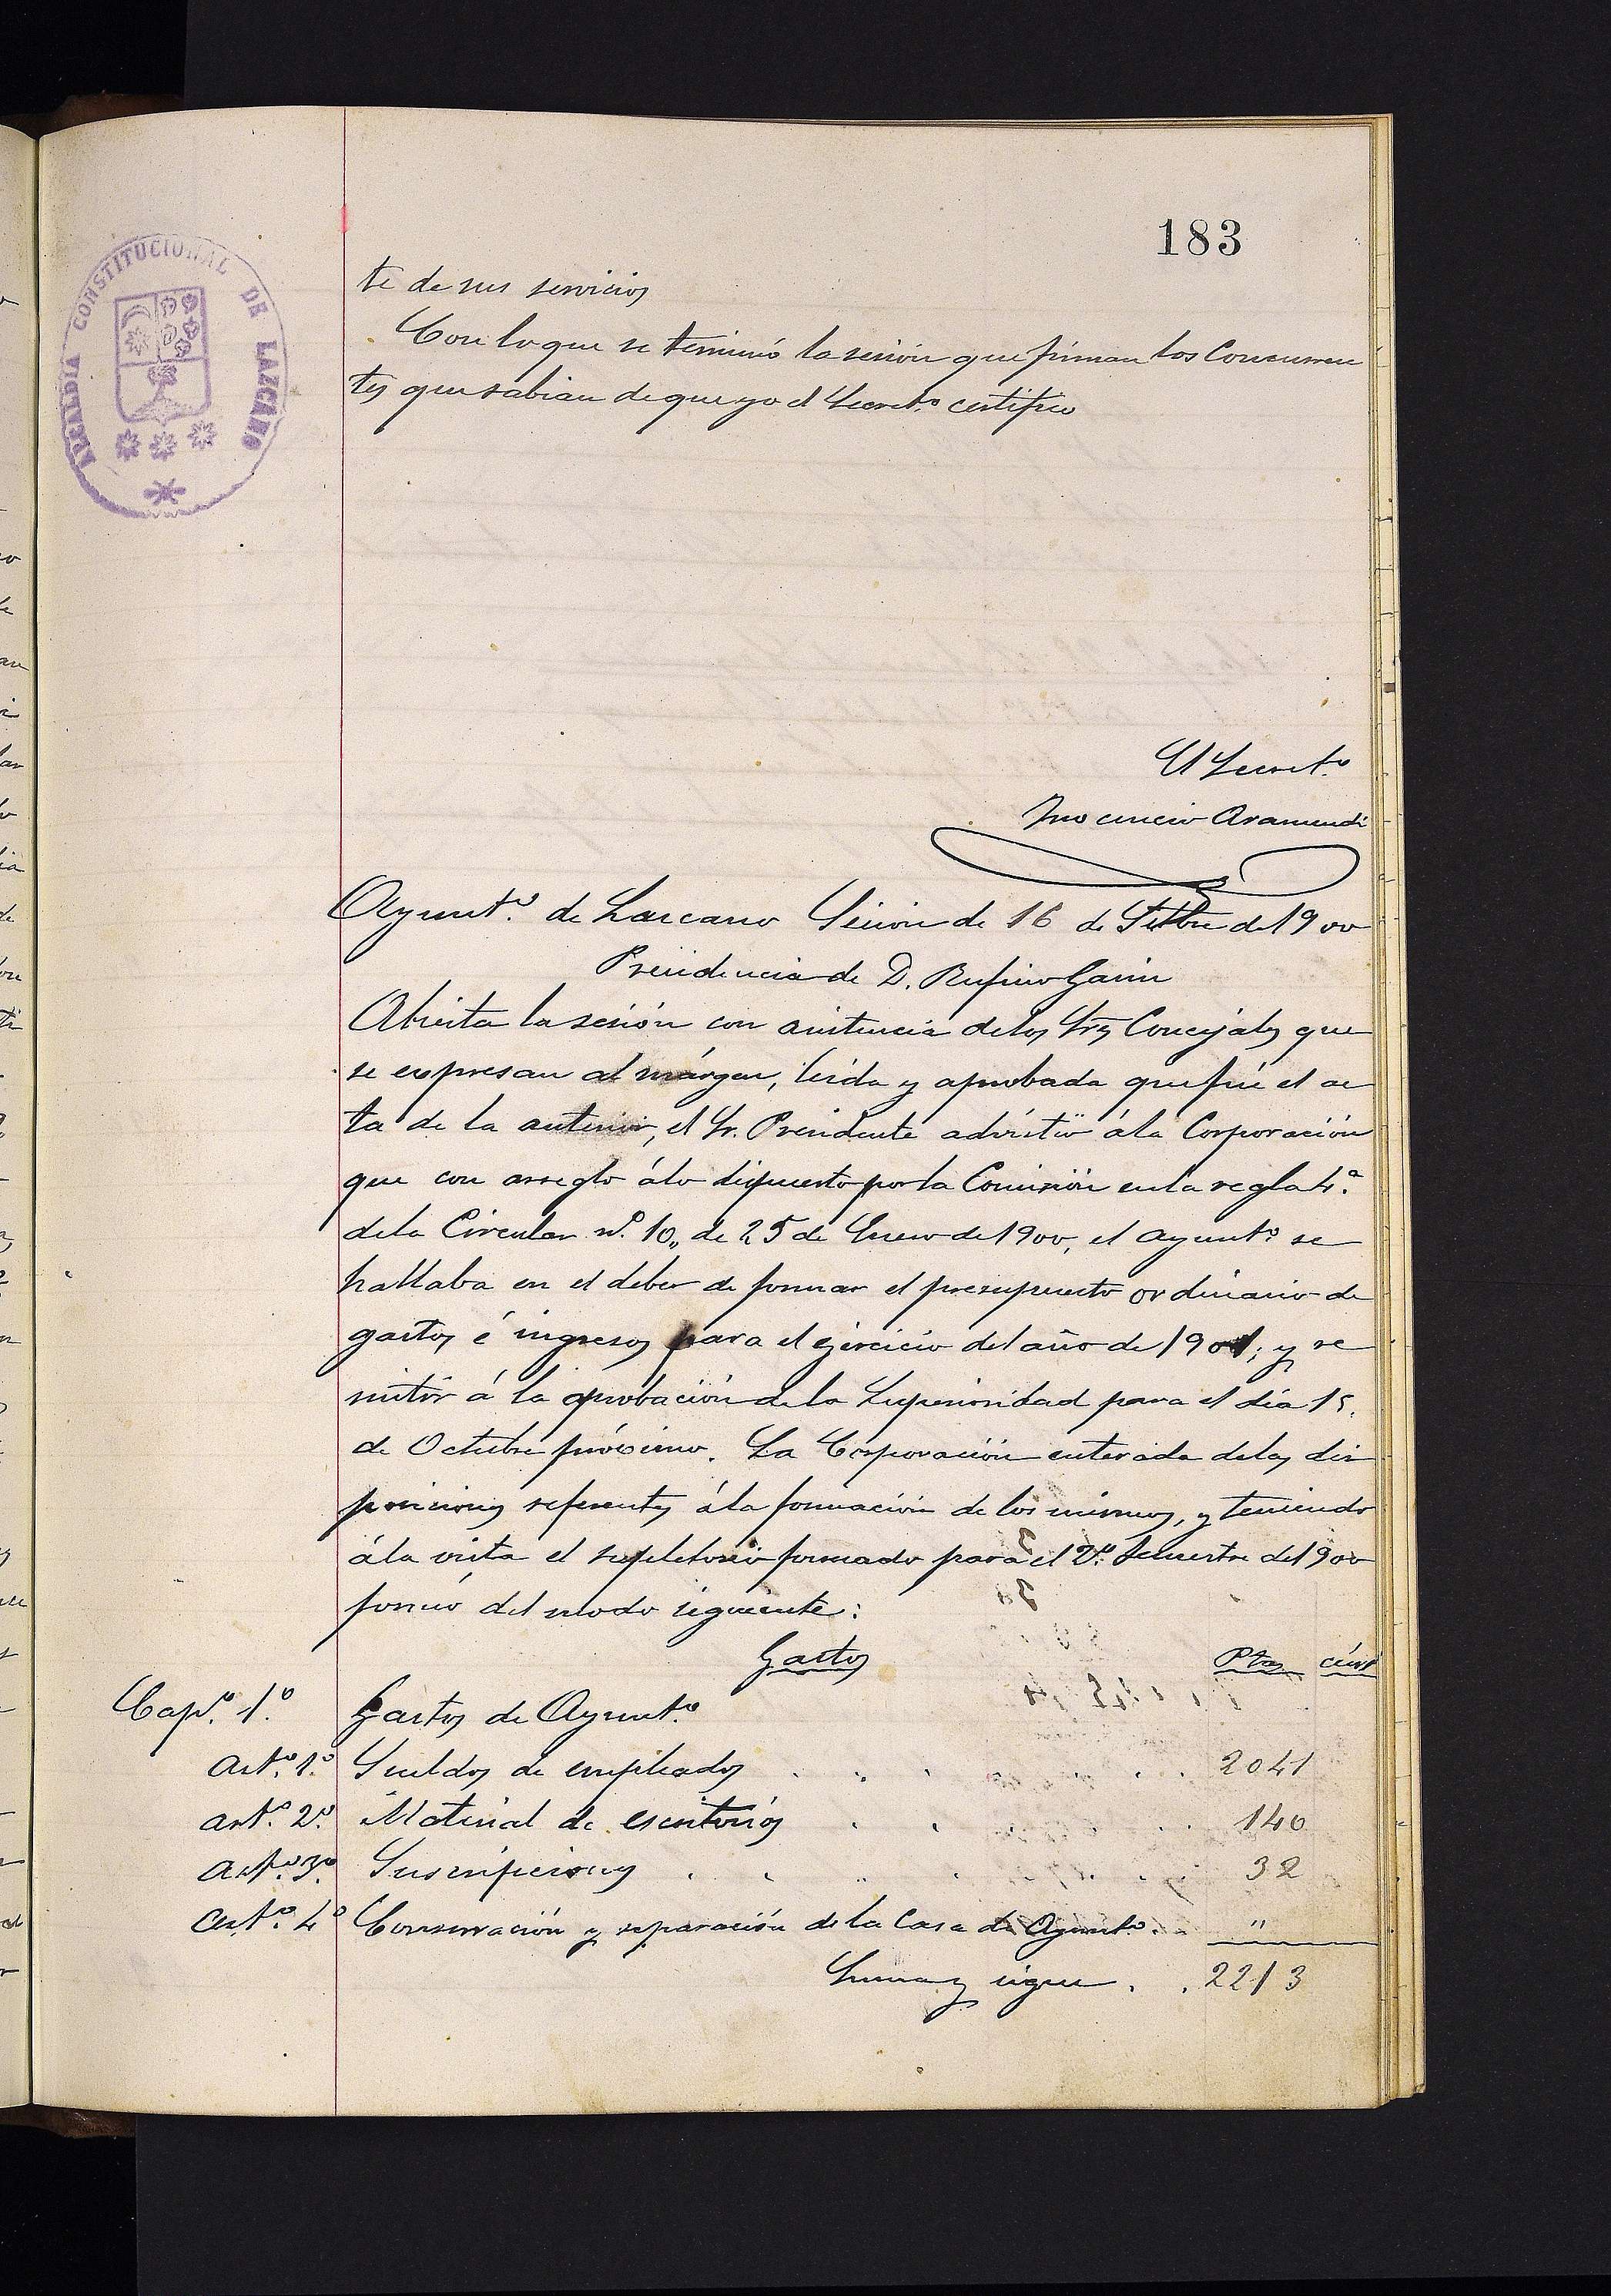 183
ALCALDIA CONSTITUCIONAL DE LAZCANO
te de sus servicios
Con lo que se terminó la sesión que firman los Concurren
tes que sabian de que yo el Secret.º certifico
El Secret.º
Inocencio Aramendi
Ayunt.º de Lazcano Sesión de 16 de Setbre de 1900
Presidencia de D. Rufino Garin
Abierta la sesión con asistencia de los Srs Concejales que
se expresan al márgen, leida y aprobada que fué el ac
ta de la anterior, el Sr. Presidente advirtió á la Corporación
que con arreglo á lo dispuesto por la Comisión en la regla 4.ª
de la Circular nº. 10,, de 25 de Enero de 1900, el ayunt.º se
hallaba en el deber de formar el presupuesto ordinario de
gastos é ingresos para el ejercicio del año de 1901; y re
mitir á la aprobación de la Superioridad para el dia 15.
de Octubre próximo. La Corporación enterada de las dis
posiciones referentes á la formación de los mismos, y teniendo
á la vista el supletorio formado para el 2.º Semestre de 1900
formó del modo siguiente:
Gastos Ptas cént
Cap.º 1.º Gastos de Ayunt.º
Art.º 1.º Sueldos de empleados 2041
art.º 2.º Material de escritorios 140
Art.º 3.º Suscripciones 32
Art.º 4º Conservación y reparación de la Casa de Ayunt.º "
Suma y sigue . . 2213